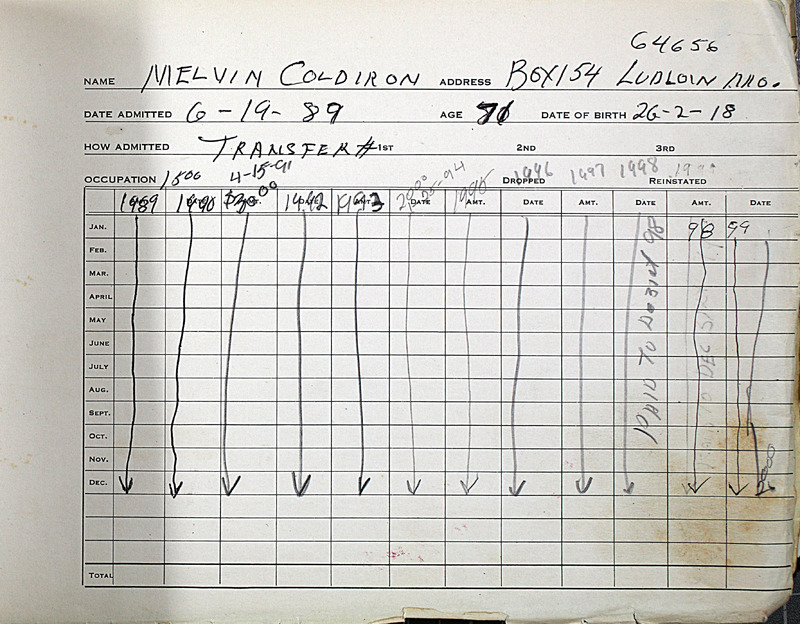 64656
NAME MELVIN COLDIRON ADDRESS BOX 154 LUDLOW MO.
DATE ADMITTED 6-19-89 AGE 71 DATE OF BIRTH 26-2-18
HOW ADMITTED TRANSFER # 1ST 2ND 3RD
OCCUPATION 1500 4-15-91 DROPPED 1996 1997 1998 REINSTATED
1989 1990 1992 1993 DATE AMT. DATE AMT. DATE AMT. DATE
JAN. 98 99
FEB.
MAR.
APRIL
MAY
JUNE
JULY
AUG.
SEPT.
OCT.
NOV.
DEC. 2000
TOTAL
PAID TO DEC 31st 98